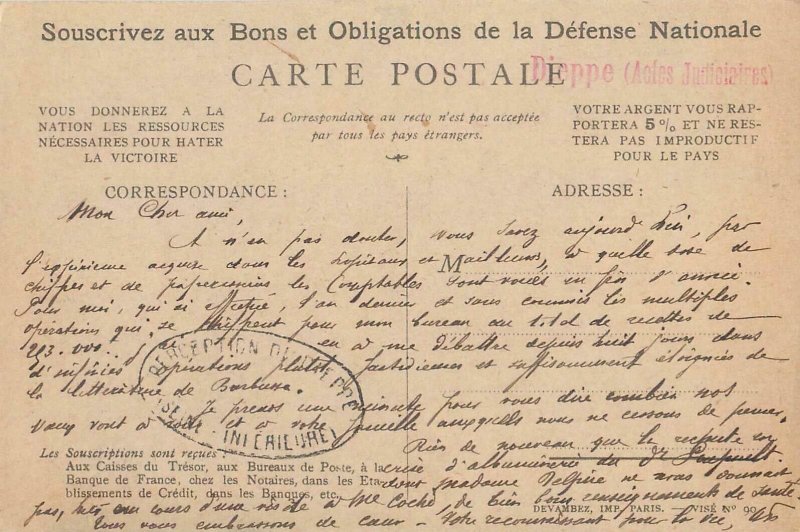 Souscrivez aux Bons et Obligations de la Défense Nationale
CARTE POSTALE
Dieppe (Actes Judiciaires)
VOUS DONNEREZ A LA
NATION LES RESSOURCES
NÉCESSAIRES POUR HATER
LA VICTOIRE
La Correspondance au recto n'est pas acceptée
par tous les pays étrangers.
VOTRE ARGENT VOUS RAP-
PORTERA 5% ET NE RES-
TERA PAS IMPRODUCTIF
POUR LE PAYS
CORRESPONDANCE :
ADRESSE :
Mon Cher ami,
A n'en pas douter, vous savez aujourd'hui, par
l'expérience acquise dans les hopitaux et ailleurs, à quelle dose de
chiffres et de paperasseries les Comptables sont voués en fin d'année.
Pour moi, qui ai effectué, l'an dernier et sans commis les multiples
opérations qui se chiffrent pour mon bureau au total de recettes de
293.000 on a me débattre depuis huit jours dans
d' opérations plutôt fastidieuses et suffisamment éloignées de
la littérature de Barbusse.
Je prends une minute pour vous dire combien nos
vœux vont à vous et à votre famille auxquels nous ne cessons de penser.
Rien de nouveau que la
crise d'albuminerie du Dr
dont madame ne nous donnait
pas, lors au cours d'une visite à Me Coche, de bien bons renseignements de santé
Tous vous embrassons de cœur - Votre reconnaissant pour la vie,
M
PERCEPTION DE DIEPPE
(SEINE-INFÉRIEURE)
Les Souscriptions sont reçues :
Aux Caisses du Trésor, aux Bureaux de Poste, à la
Banque de France, chez les Notaires, dans les Eta-
blissements de Crédit, dans les Banques, etc.
DEVAMBEZ, IMP. PARIS. VISÉ N° 99